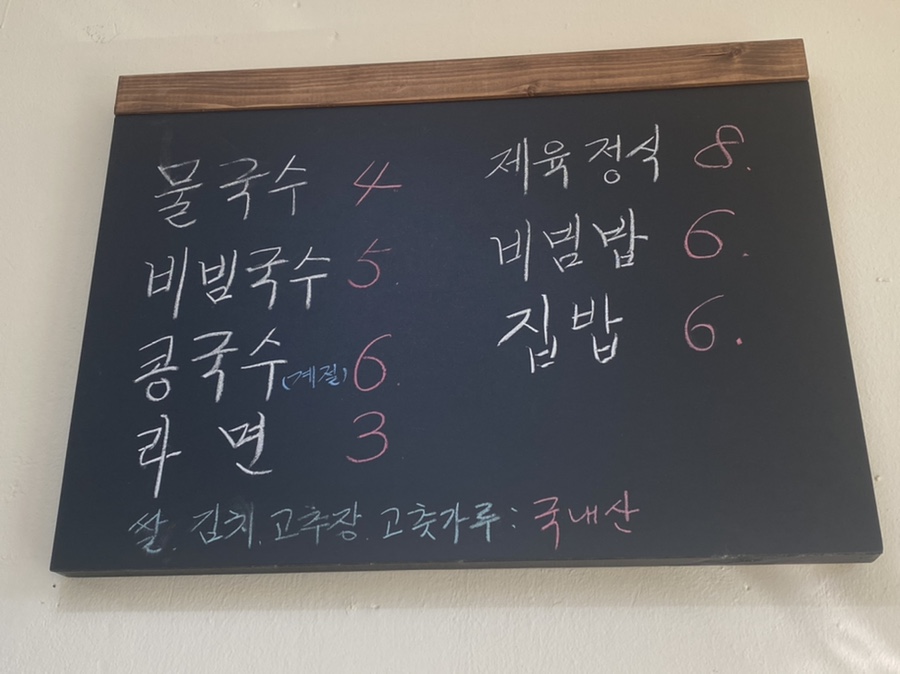 물국수 4.
비빔국수 5.
콩국수(계절) 6.
라면 3
제육정식 8.
비빔밥 6.
집밥 6.
쌀. 김치. 고추장. 고춧가루: 국내산